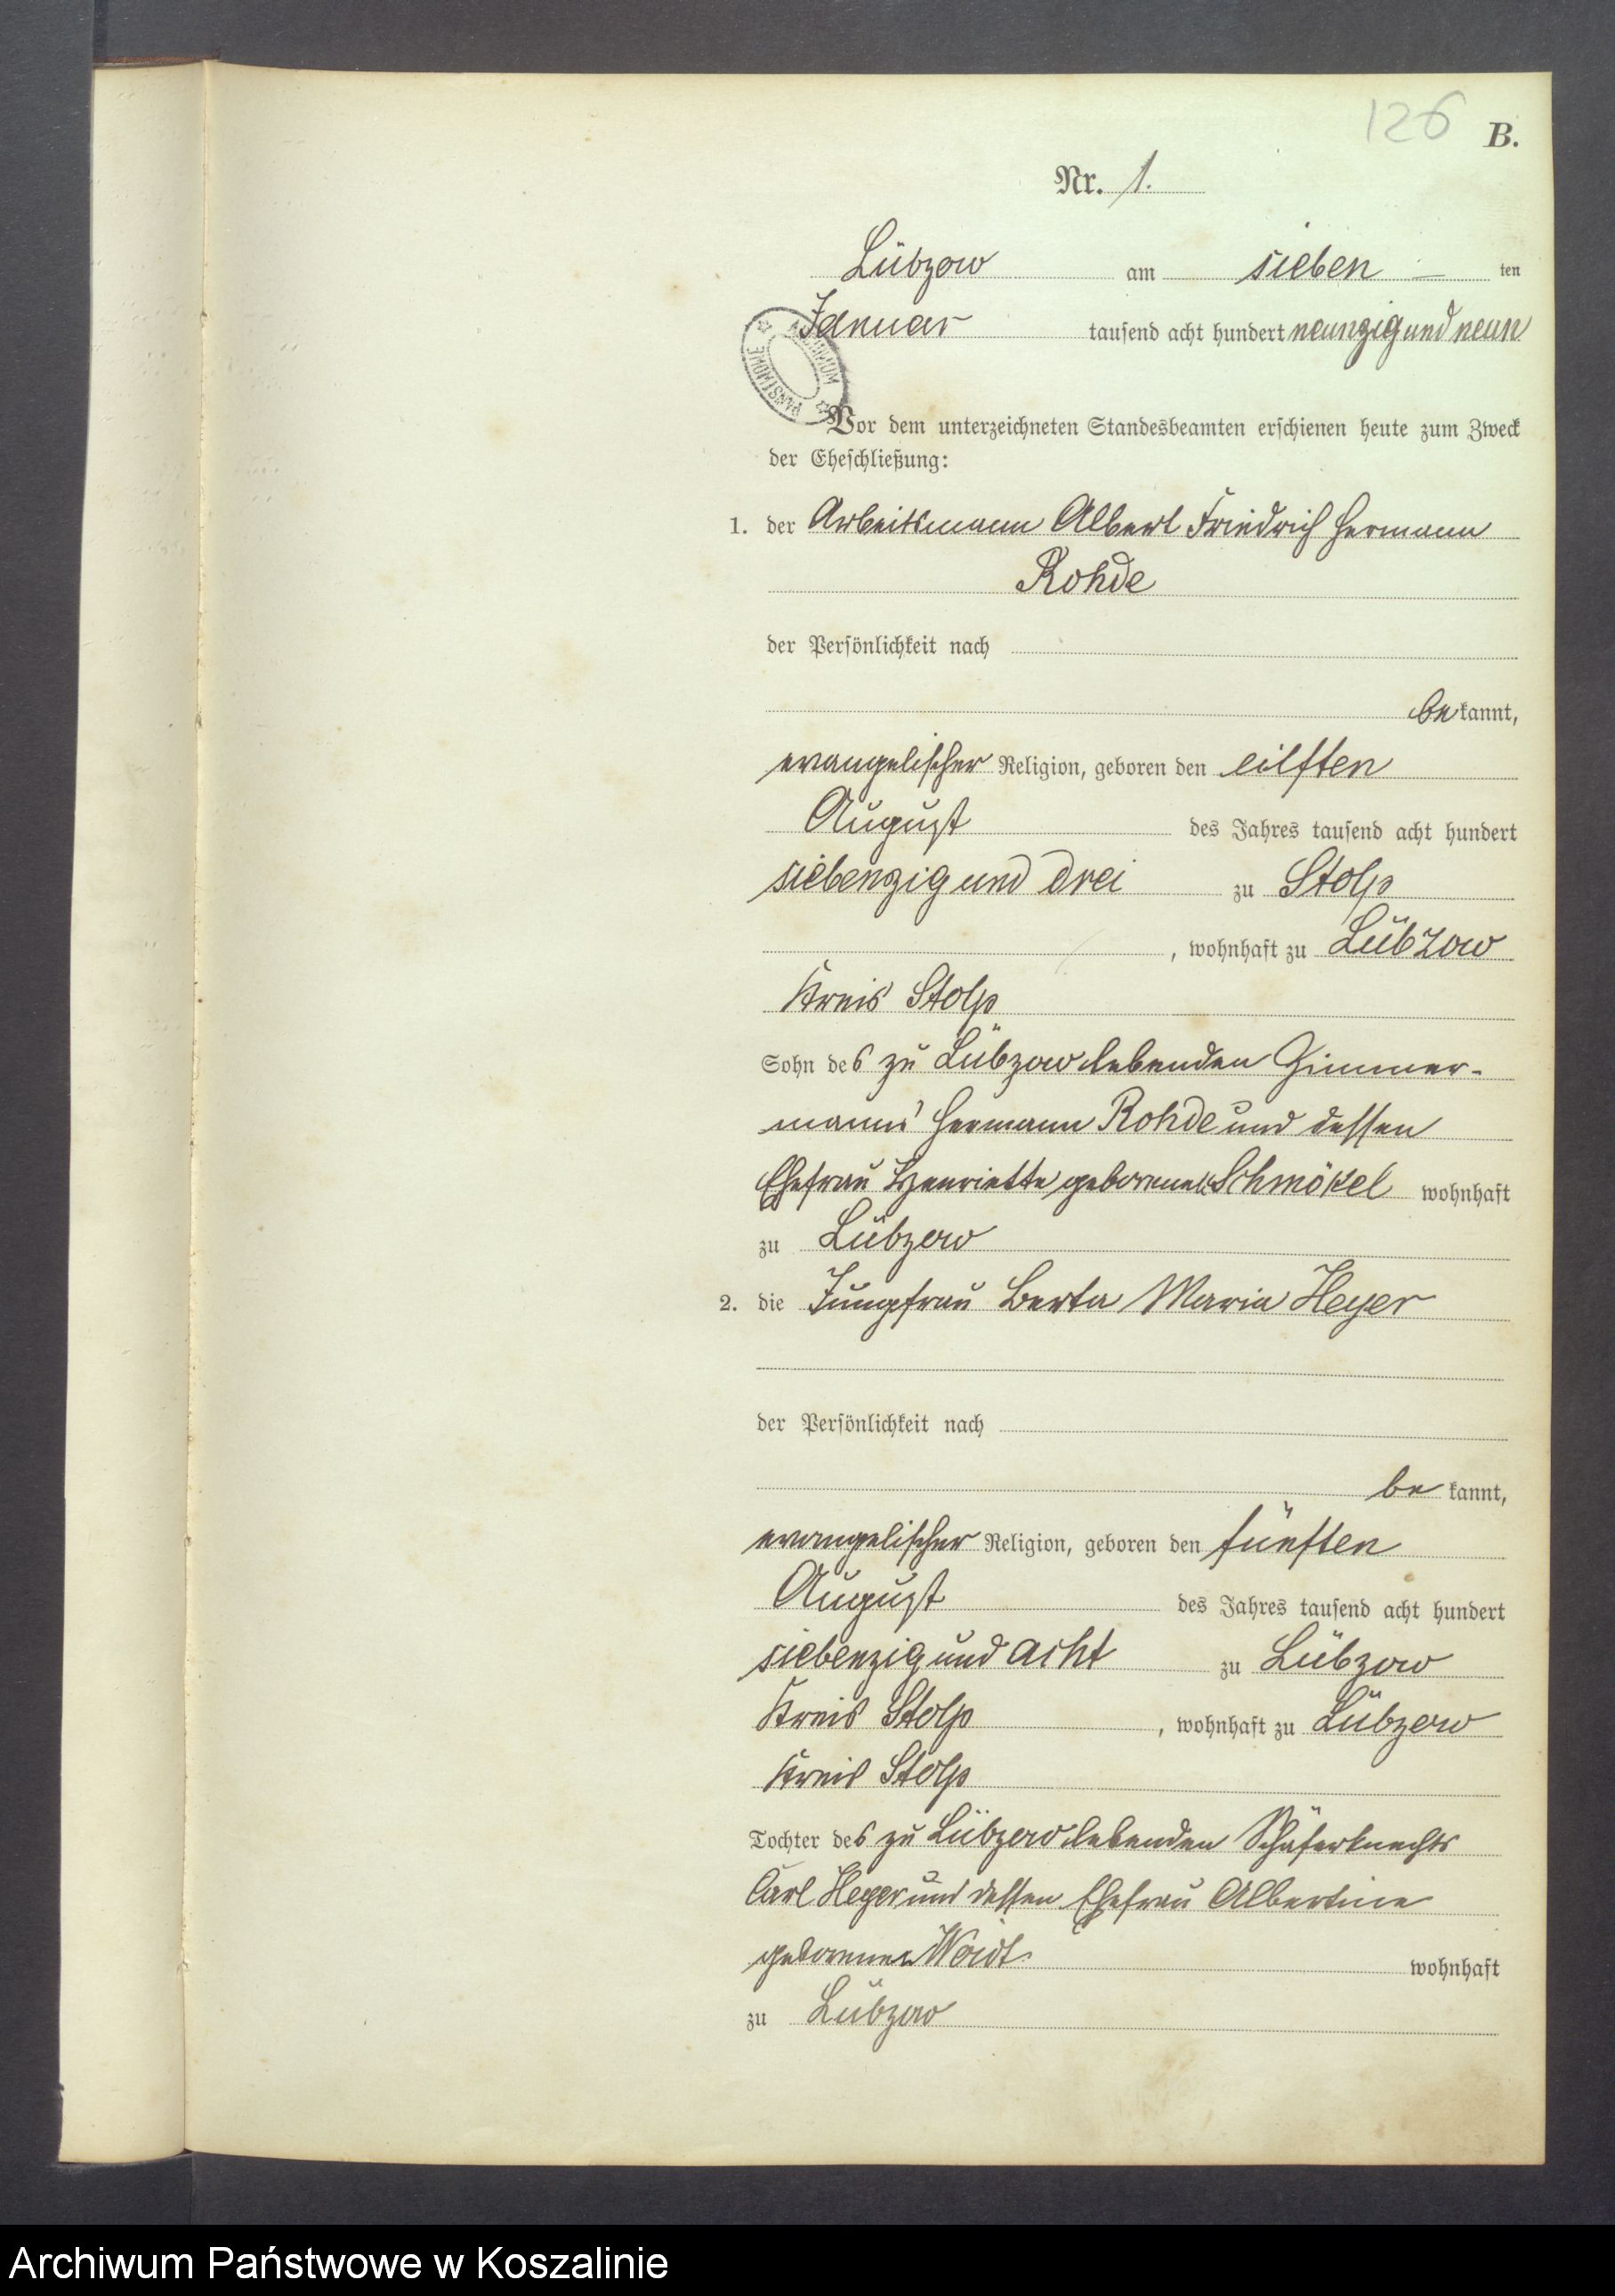 126
B.
Nr. 1.
Lübzow am sieben – ten
Januar tausend acht hundert neunzig und neun
ARCHIWUM PAŃSTWOWE
Vor dem unterzeichneten Standesbeamten erschienen heute zum Zweck
der Eheschließung:
1. der Arbeitsmann Albert Friedrich Hermann
Rohde
der Persönlichkeit nach
bekannt,
evangelischer Religion, geboren den eilften
August des Jahres tausend acht hundert
siebenzig und drei zu Stolp
, wohnhaft zu Lübzow
Kreis Stolp
Sohn des zu Lübzow lebenden Zimmer-
manns Hermann Rohde und dessen
Ehefrau Henriette geborenen Schmökel wohnhaft
zu Lübzow
2. die Jungfrau Berta Maria Heyer
der Persönlichkeit nach
bekannt,
evangelischer Religion, geboren den fünften
August des Jahres tausend acht hundert
siebenzig und acht zu Lübzow
Kreis Stolp , wohnhaft zu Lübzow
Kreis Stolp
Tochter des zu Lübzow lebenden Schäferknechts
Carl Heyer und dessen Ehefrau Albertine
geborenen Woidt wohnhaft
zu Lübzow
Archiwum Państwowe w Koszalinie